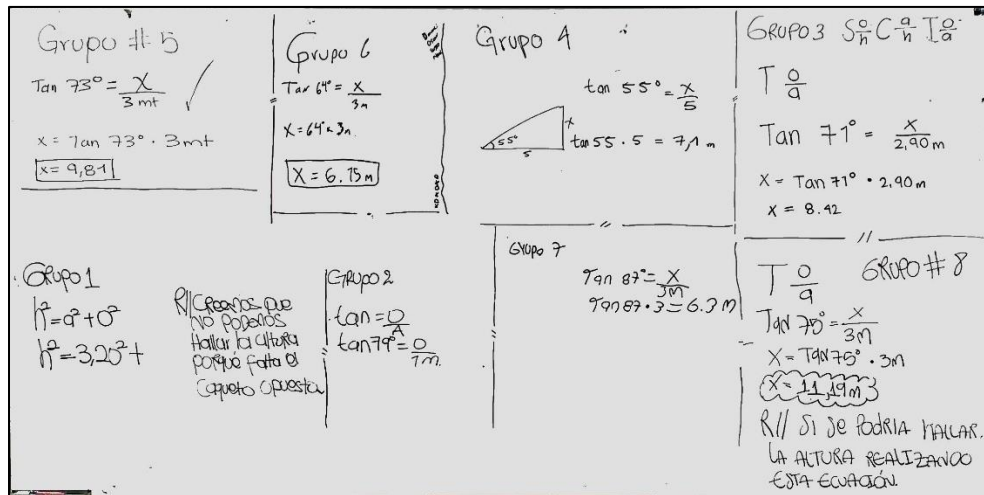 Grupo # 5
Tan 73° = x/3 mt
x = Tan 73° · 3mt
x = 9,81
Grupo 6
Tan 64° = x/3m
X = 64° x 3m.
X = 6.15m
Grupo 4
tan 55° = x/5
55°
5
x
tan 55 · 5 = 7,1 m
GRUPO 3 S o/h C a/h T o/a
T o/a
Tan 71° = x/2,90m
X = Tan 71° · 2,90m
X = 8.42
GRUPO 1
h² = a² + o²
h² = 3,20² +
R// CREEMOS QUE
NO PODEMOS
Hallar la altura
porque falta el
Caqueto opuesto
GRUPO 2
tan = O/A
tan 79° = O/7m.
Grupo 7
Tan 87° = X/3M
Tan 87 · 3 = 6.3 M
GRUPO # 8
T o/a
Tan 75° = x/3M
X = Tan 75° · 3M
X = 11,19m
R// SI SE PODRIA HALLAR.
LA ALTURA REALIZANDO
ESTA ECUACIÓN